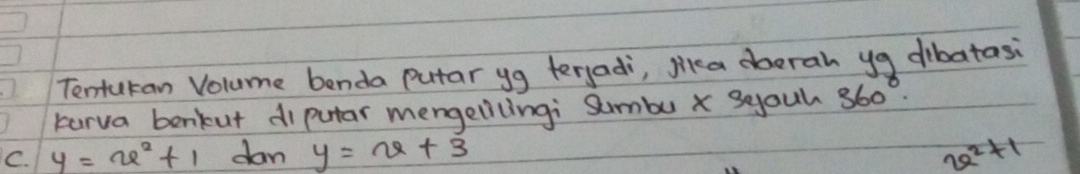 Tentukan Volume benda putar yg terjadi, jika daerah yg dibatasi
kurva berikut diputar mengelilingi Sumbu x sejauh 360°.
C. y = x² + 1 dan y = x + 3
x²+1